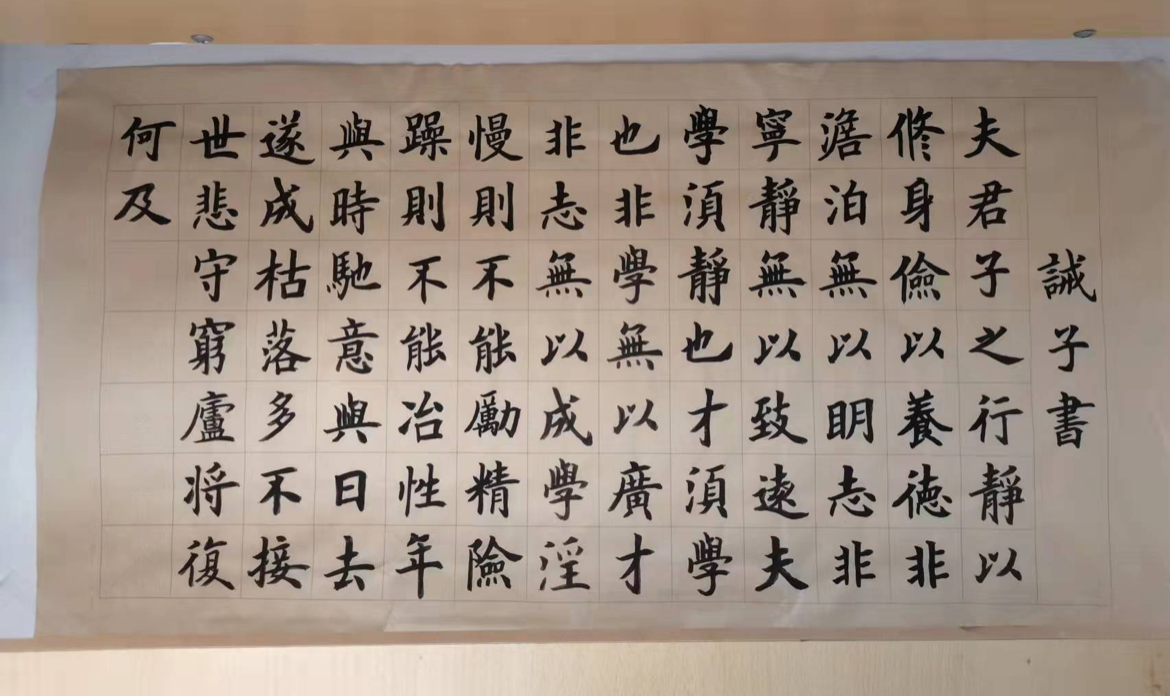 誡子書
夫君子之行靜以
修身儉以養德非
澹泊無以明志非
寧靜無以致遠夫
學須靜也才須學
也非學無以廣才
非志無以成學淫
慢則不能勵精險
躁則不能冶性年
與時馳意與日去
遂成枯落多不接
世悲守窮廬将復
何及